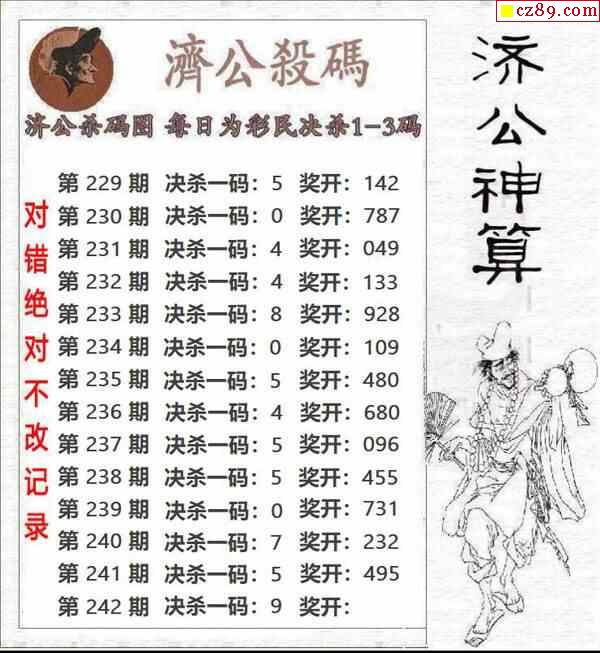 cz89.com
濟公殺碼
济公杀码图 每日为彩民决杀1-3码
第 229 期 决杀一码：5 奖开：142
第 230 期 决杀一码：0 奖开：787
第 231 期 决杀一码：4 奖开：049
第 232 期 决杀一码：4 奖开：133
第 233 期 决杀一码：8 奖开：928
第 234 期 决杀一码：0 奖开：109
第 235 期 决杀一码：5 奖开：480
第 236 期 决杀一码：4 奖开：680
第 237 期 决杀一码：5 奖开：096
第 238 期 决杀一码：5 奖开：455
第 239 期 决杀一码：0 奖开：731
第 240 期 决杀一码：7 奖开：232
第 241 期 决杀一码：5 奖开：495
第 242 期 决杀一码：9 奖开：
对错绝对不改记录
济公神算